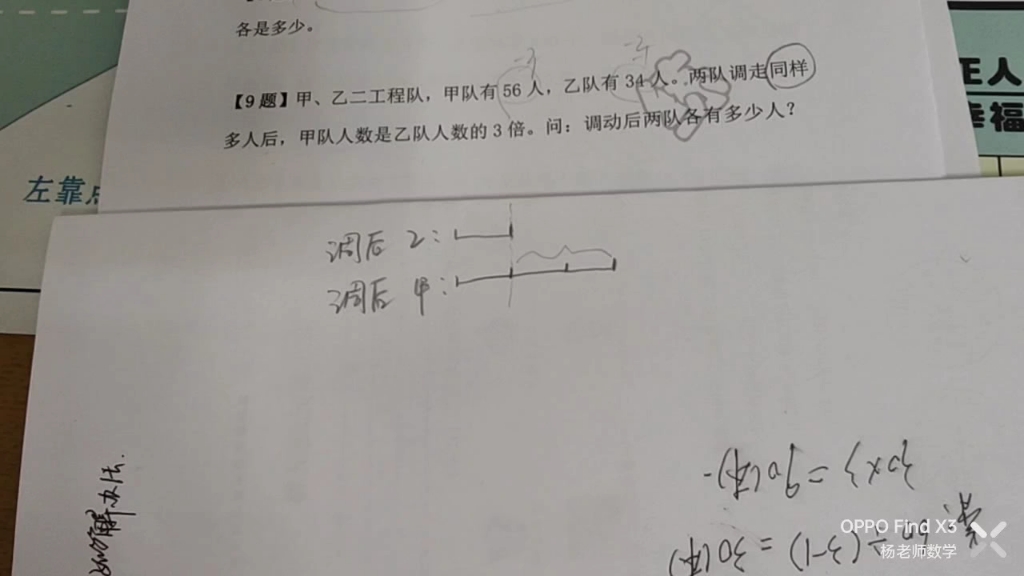 各是多少。
【9 题】甲、乙二工程队，甲队有 56 人，乙队有 34 人。两队调走同样
多人后，甲队人数是乙队人数的 3 倍。问：调动后两队各有多少人？
正人
幸福
左靠点
调后 乙：
调后 甲：
30×3=90(本)
60÷(3-1)=30(本)
解办法.
OPPO Find X3
杨老师数学